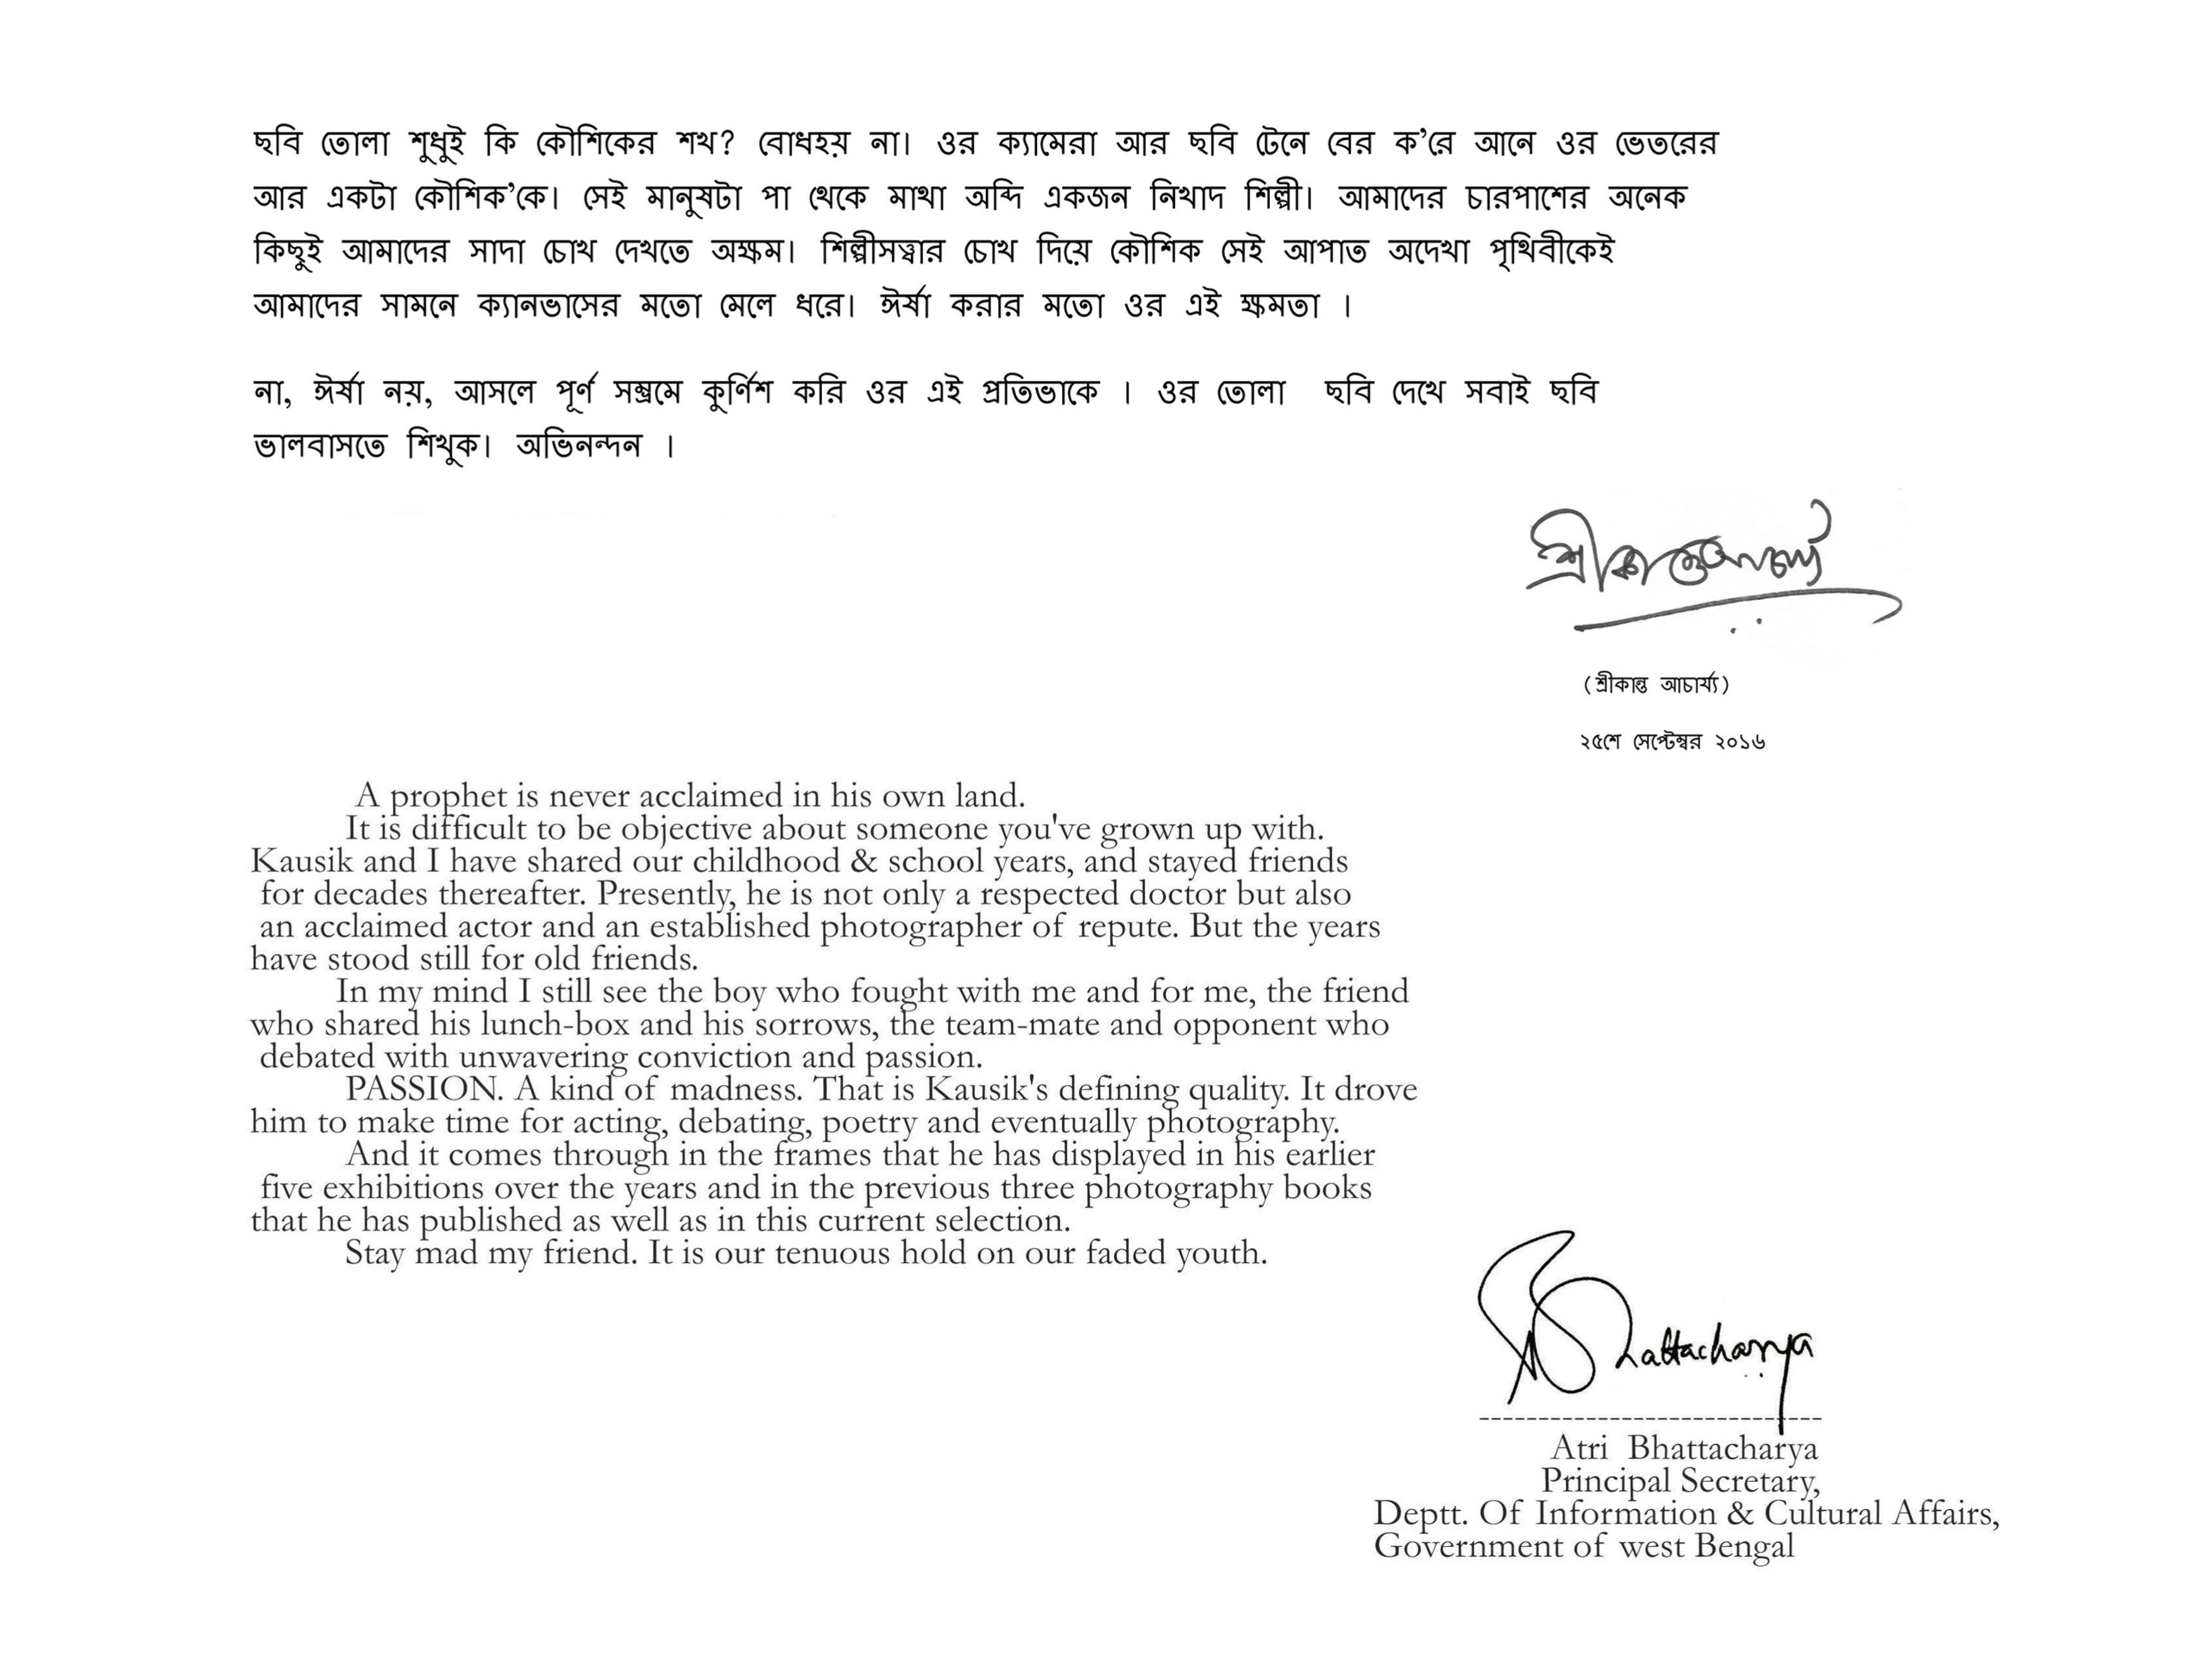 ছবি তোলা শুধুই কি কৌশিকের শখ? বোধহয় না। ওর ক্যামেরা আর ছবি টেনে বের ক’রে আনে ওর ভেতরের
আর একটা কৌশিক’কে। সেই মানুষটা পা থেকে মাথা অব্দি একজন নিখাদ শিল্পী। আমাদের চারপাশের অনেক
কিছুই আমাদের সাদা চোখ দেখতে অক্ষম। শিল্পীসত্ত্বার চোখ দিয়ে কৌশিক সেই আপাত অদেখা পৃথিবীকেই
আমাদের সামনে ক্যানভাসের মতো মেলে ধরে। ঈর্ষা করার মতো ওর এই ক্ষমতা ।
না, ঈর্ষা নয়, আসলে পূর্ণ সম্ভ্রমে কুর্ণিশ করি ওর এই প্রতিভাকে । ওর তোলা ছবি দেখে সবাই ছবি
ভালবাসতে শিখুক। অভিনন্দন ।
শ্রীকান্ত আচার্য
(শ্রীকান্ত আচার্য্য)
২৫শে সেপ্টেম্বর ২০১৬
A prophet is never acclaimed in his own land.
It is difficult to be objective about someone you've grown up with.
Kausik and I have shared our childhood & school years, and stayed friends
for decades thereafter. Presently, he is not only a respected doctor but also
an acclaimed actor and an established photographer of repute. But the years
have stood still for old friends.
In my mind I still see the boy who fought with me and for me, the friend
who shared his lunch-box and his sorrows, the team-mate and opponent who
debated with unwavering conviction and passion.
PASSION. A kind of madness. That is Kausik's defining quality. It drove
him to make time for acting, debating, poetry and eventually photography.
And it comes through in the frames that he has displayed in his earlier
five exhibitions over the years and in the previous three photography books
that he has published as well as in this current selection.
Stay mad my friend. It is our tenuous hold on our faded youth.
ABhattacharya
Atri Bhattacharya
Principal Secretary,
Deptt. Of Information & Cultural Affairs,
Government of west Bengal